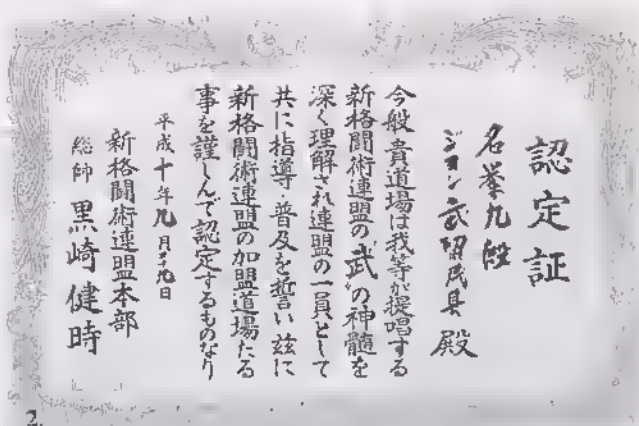 認定証
名誉九段
ジョン武留民具 殿
今般貴道場は我等が提唱する
新格闘術連盟の“武”の神髄を
深く理解され連盟の一員として
共に指導、普及を誓い茲に
新格闘術連盟の加盟道場たる
事を謹しんで認定するものなり
平成十年九月十九日
新格闘術連盟本部
総師 黒崎健時
2